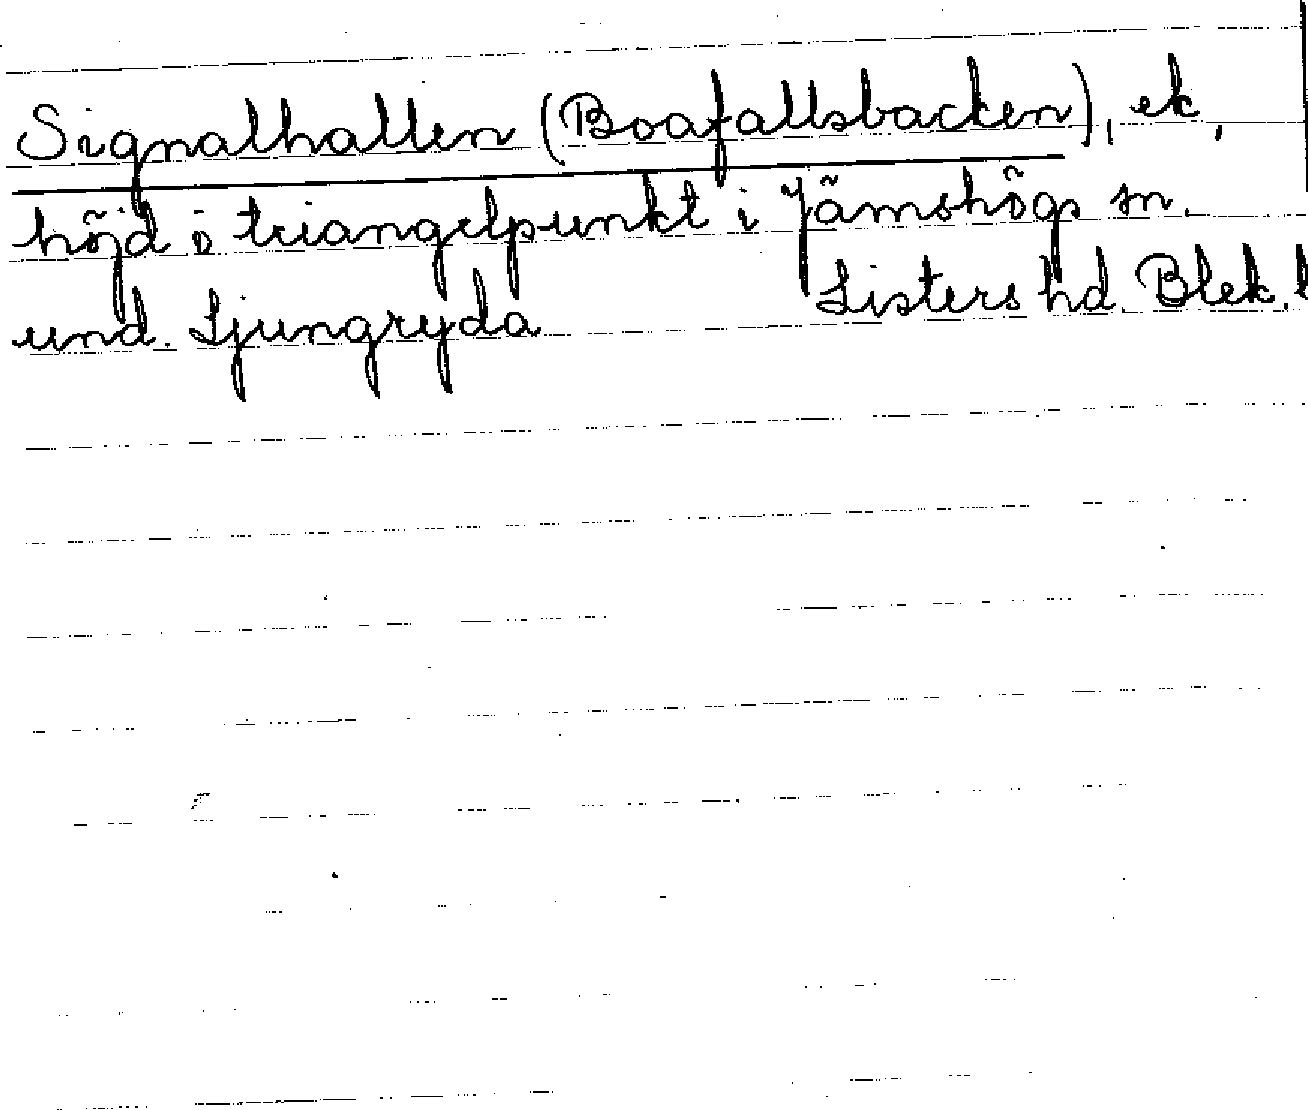 Signalhallen (Boafallsbacken), ek,
höjd o triangelpunkt i Jämshögs sn.
und. Ljungryda Listers hd. Blek. l